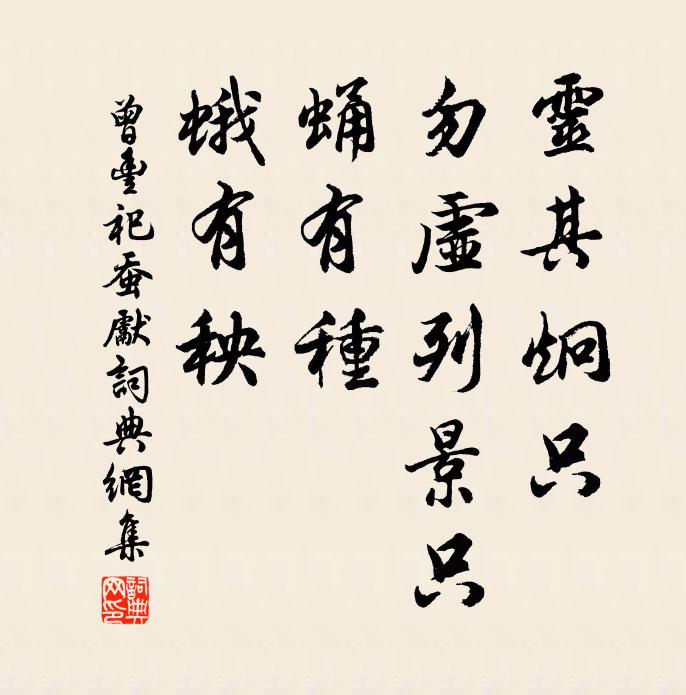 靈其炯只
勿虛列景只
蛹有種
蛾有秧
曾豐祀蚕獻詞典網集
詞典网印